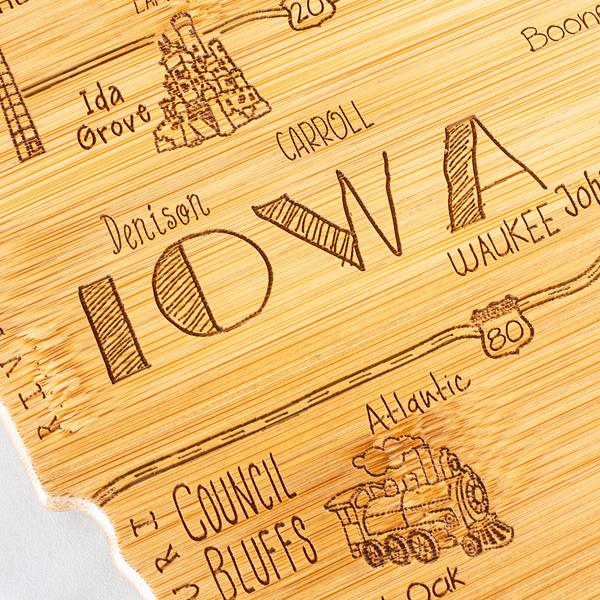 20
Ida
Grove
CARROLL
Denison
IOWA
WAUKEE
80
Atlantic
COUNCIL
BLUFFS
Oak